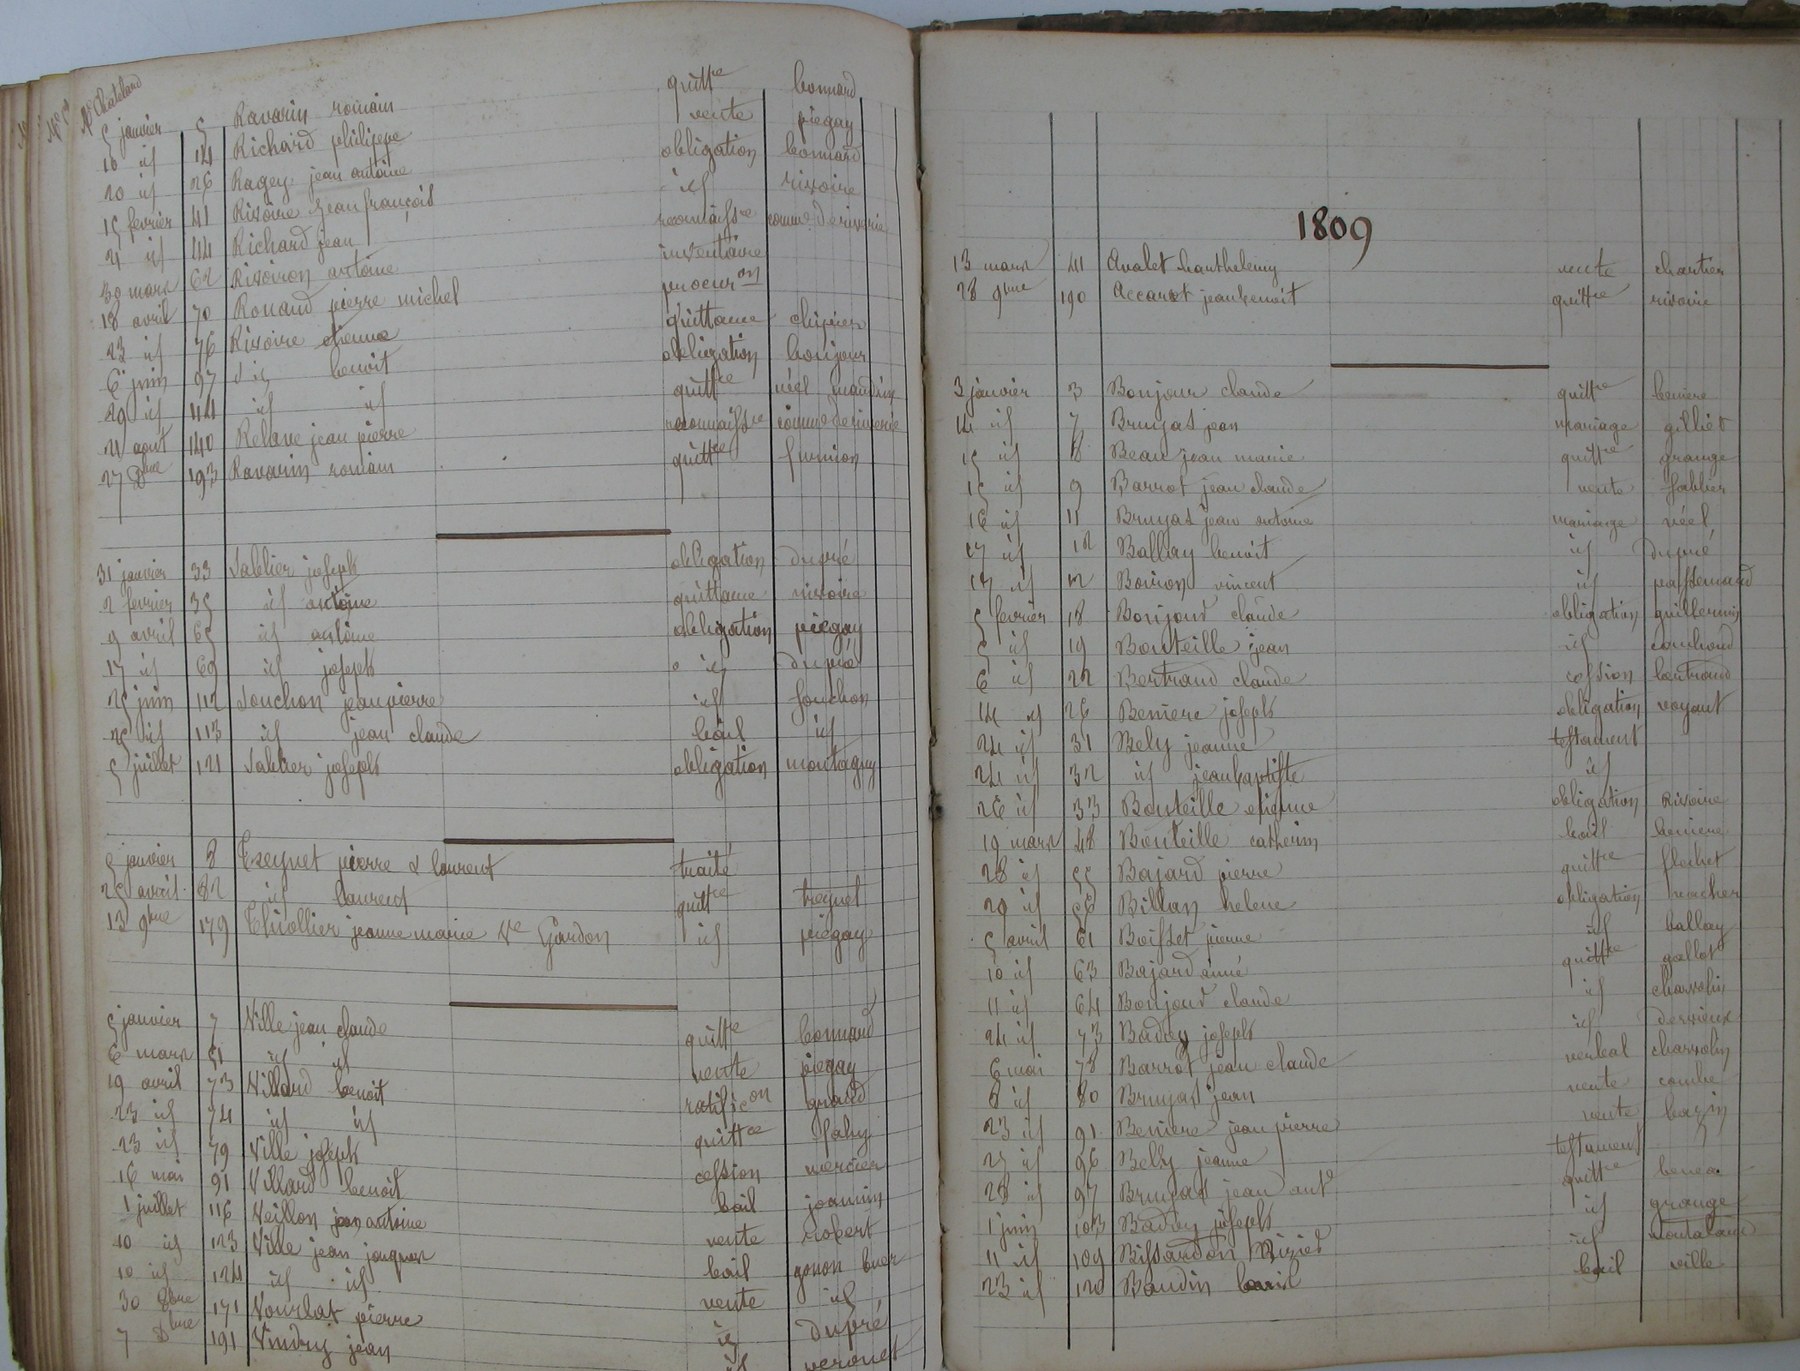 Me Chataland
5 janvier 5 Ravarin romain quittce bonnard
10 id 14 Richard philippe vente piegay
20 id 26 Ragey jean antoine obligation bonnard
15 fevrier 41 Rivoire jean françois id rivoire
21 id 44 Richard jean reconnaissce comme de riverie
30 mars 62 Rivoiron antoine inventaire
18 avril 70 Ronaud pierre michel procuron
23 id 76 Rivoire etienne quittance chipier
6 juin 97 id benoit obligation bonjour
29 id 114 id id quittce néel
21 aout 140 Relave jean pierre reconnaissce comme de riverie
27 Dbre 193 Ravarin romain quittce furnion
31 janvier 33 Sablier joseph obligation dupré
2 fevrier 35 id antoine quittance rivoire
9 avril 65 id antoine obligation piegay
17 id 69 id joseph id dupré
25 juin 112 Souchon jean pierre id souchon
25 id 113 id jean claude bail id
5 juillet 121 Sablier joseph obligation montagny
5 janvier 8 Treynet pierre & laurent traité
25 avril 82 id laurent quittce treynet
13 9bre 179 Thiollier jeanne marie Ve Gardon id piegay
5 janvier 7 Ville jean claude quittce bonnard
6 mars 51 id id vente piegay
19 avril 73 Villard benoit ratificon grand
23 id 74 id id quittce fahy
23 id 79 Ville joseph cession mercier
16 mai 91 Villard benoit bail joannin
1 juillet 116 Veillon jean antoine vente robert
10 id 123 Ville jean jacques bail gonon
10 id 124 id id vente id
30 8bre 171 Vourlat pierre id dupré
7 Dbre 191 Vindry jean id
1809
13 mars 41 Avalet barthelemy vente chantier
28 9bre 190 Accarot jean benoit quittce rivoire
3 janvier 3 Bonjour claude quittce beniere
14 id 7 Bruyas jean mariage gilliet
15 id 8 Beau jean marie quittce grange
15 id 9 Barrot jean claude vente sablier
16 id 11 Bruyas jean antoine mariage véel
17 id 12 Ballay benoit id dupré
17 id 12 Boiron vincent id passemard
5 fevrier 18 Bonjour claude obligation guillermin
5 id 19 Bouteille jean id couchoud
6 id 22 Bertrand claude cession bertrand
14 id 26 Beniere joseph obligation voyant
24 id 31 Bely jeanne testament
24 id 32 id jean baptiste id
26 id 33 Bouteille etienne obligation Rivoire
19 mars 48 Bouteille catherin bail beniere
28 id 55 Bajard pierre quittce flechet
29 id 56 Billan helene obligation
5 avril 61 Boisset pierre id ballay
10 id 63 Bajard aimé quittce gallot
11 id 64 Bonjour claude id charvolin
24 id 73 Badey joseph id dervieux
6 mai 78 Barrot jean claude verbal charvolin
8 id 80 Bruyas jean vente combe
23 id 91 Beniere jean pierre vente bazin
27 id 96 Bely jeanne testament
28 id 97 Bruyas jean ante quittce
1 juin 103 Badey joseph id grange
11 id 109 Bissardon Rizier id
23 id 120 Baudin bail ville